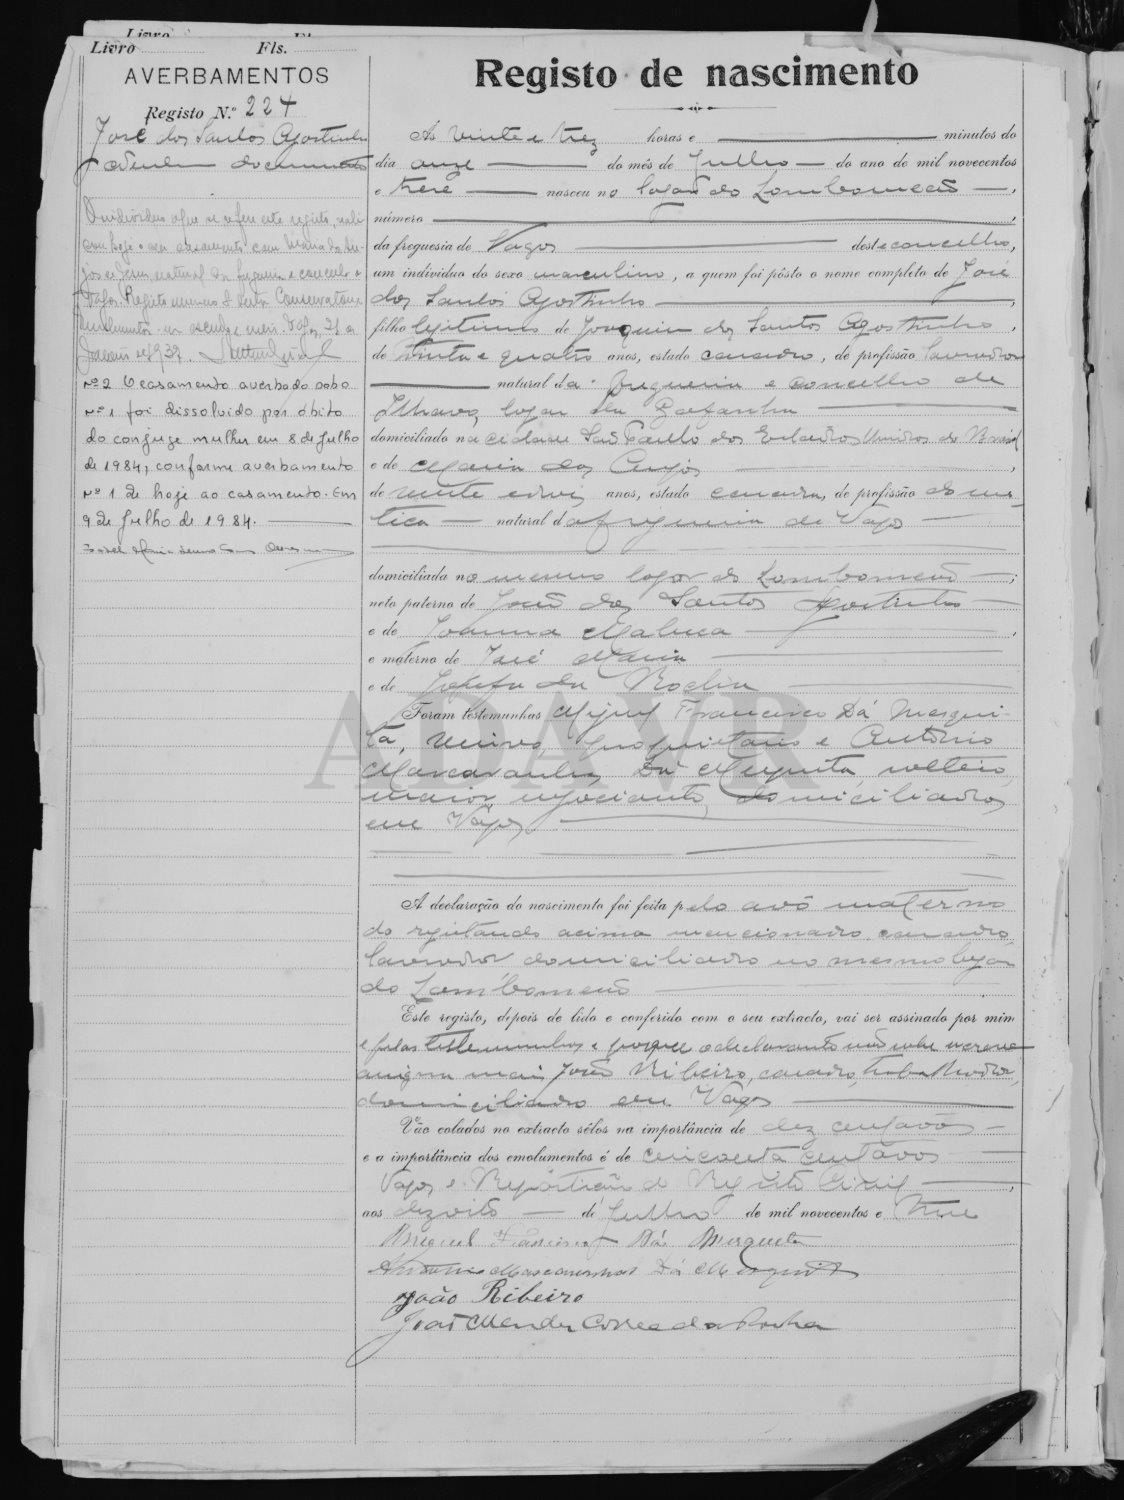 Livro Fls.
AVERBAMENTOS
Registo N.º 224
José dos Santos Agostinho
documento
O individuo a que se refere este registo, reali-
zou hoje o seu casamento com Maria dos An-
jos de Jesus, natural da freguesia e concelho de
Vagos. Registo numero 2 desta Conservatoria
Vagos, 21 de
Janeiro de 1937.
Nº 2 O casamento averbado sob o
nº 1 foi dissolvido por óbito
do conjuge mulher em 8 de Julho
de 1984, conforme averbamento
nº 1 de hoje ao casamento. Em
9 de Julho de 1984.
Registo de nascimento
Ás vinte e trez horas e minutos do
dia onze do mês de Julho do ano de mil novecentos
e treze nasceu no logar do Lombomeão,
número
da freguesia de Vagos deste concelho,
um indivíduo do sexo masculino, a quem foi pôsto o nome completo de José
dos Santos Agostinho,
filho legitimo de Joaquim dos Santos Agostinho,
de trinta e quatro anos, estado casado, de profissão lavrador
natural da freguesia e concelho de
Ilhavo, logar da Gafanha
domiciliado na cidade São Paulo dos Estados Unidos do Brazil
e de Maria dos Anjos,
de vinte e dois anos, estado casada, de profissão domes-
tica natural da freguesia de Vagos
domiciliada no mesmo logar do Lombomeão;
neto paterno de João dos Santos Agostinho
e de Joanna Maluca,
e materno de José Maria
e de Josefa da Rocha
Foram testemunhas Miguel Francisco Dá Mesqui-
ta, viuvo, proprietario e António
Mascaranhas Dá Mesquita, solteiro,
maior, negociante, domiciliados
em Vagos
A declaração do nascimento foi feita pelo avô materno
do registando acima mencionado, casado,
lavrador domiciliado no mesmo logar
do Lombomeão
Este registo, depois de lido e conferido com o seu extracto, vai ser assinado por mim
e pelas testemunhas e porque o declarante não sabe escrever
assigna mais João Ribeiro, casado, trabalhador,
domiciliado em Vagos
Vão colados no extracto sêlos na importância de dez centavos
e a importância dos emolumentos é de cincoenta centavos
Vagos e Repartição do Registo Civil,
aos dezoito de Julho de mil novecentos e treze
Miguel Francisco Dá Mesquita
Antonio Mascarenhas Dá Mesquita
João Ribeiro
José Mendes Correa da Rocha
ADAVR